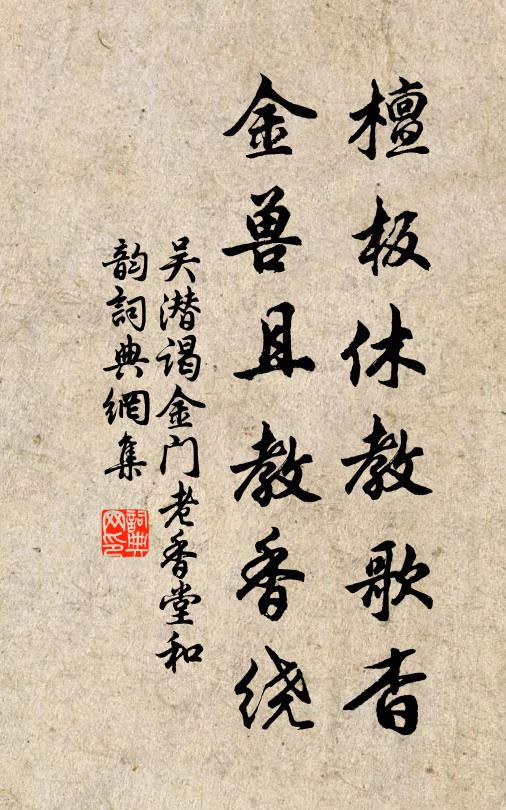 檀板休教歌杳
金兽且教香绕
吴潜谒金门老香堂和
韵詞典網集
詞典网印